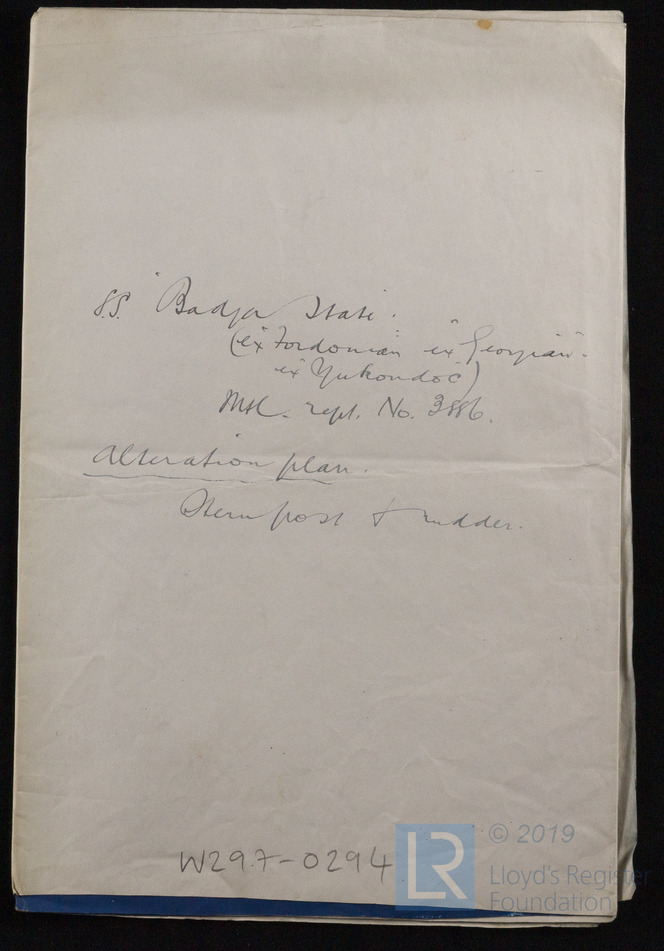 S.S. "Badja State.
(ex "Fordonian" ex "Georgian"
ex "Yukondoc")
Mtl. rept. No. 3886.
Alteration plan.
Sternpost & rudder.
W297-0294
LR
© 2019
Lloyd's Register
Foundation